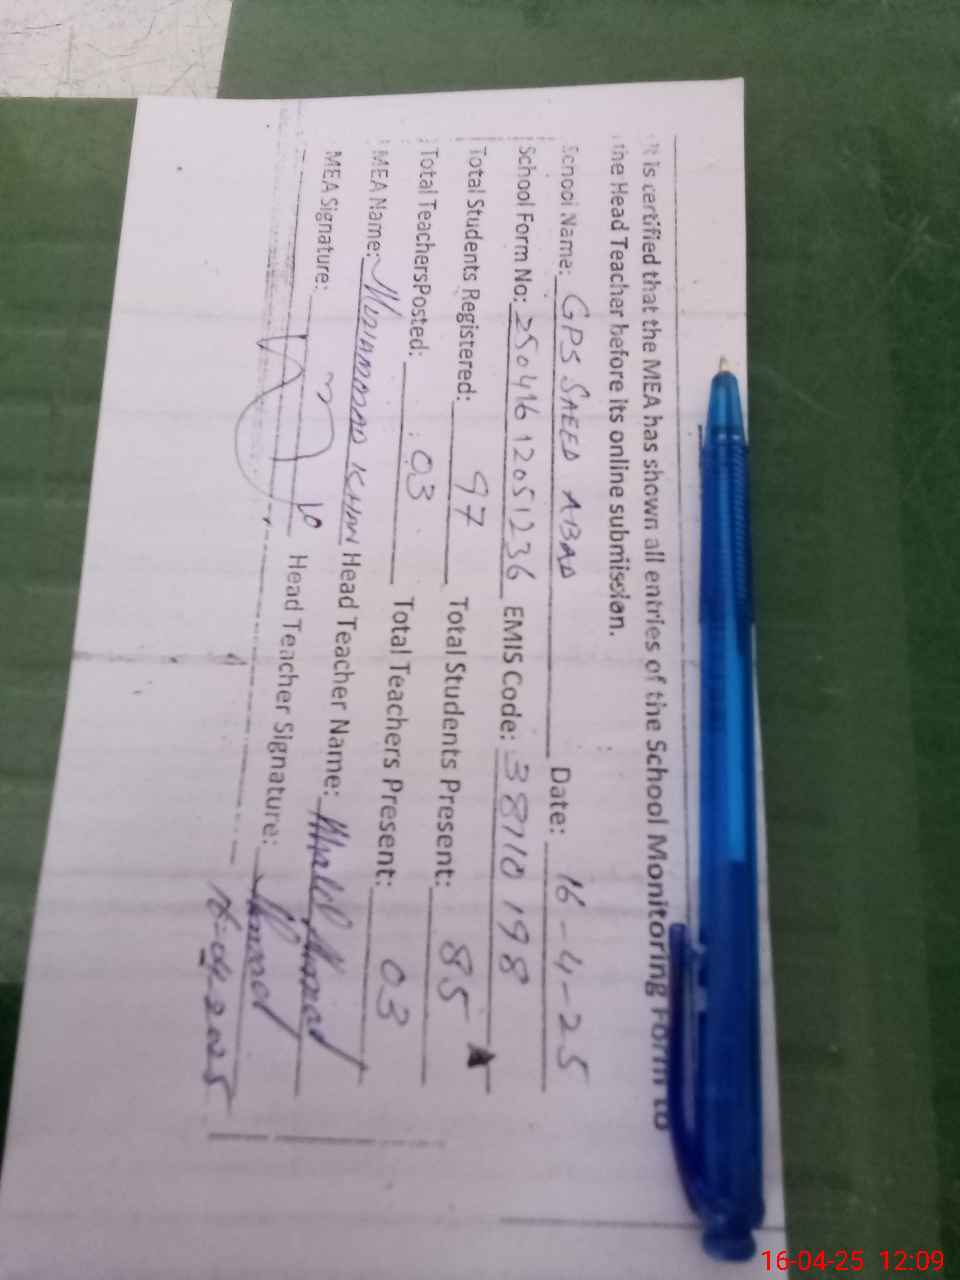 It is certified that the MEA has shown all entries of the School Monitoring Form to
the Head Teacher before its online submission.
School Name: GPS SAEED ABAD Date: 16-4-25
School Form No: 250416 12051236 EMIS Code: 38710198
Total Students Registered: 97 Total Students Present: 85
Total TeachersPosted: 03 Total Teachers Present: 03
MEA Name: MUHAMMAD KHAN Head Teacher Name:
MEA Signature: Head Teacher Signature:
16-04-2025
16-04-25 12:09